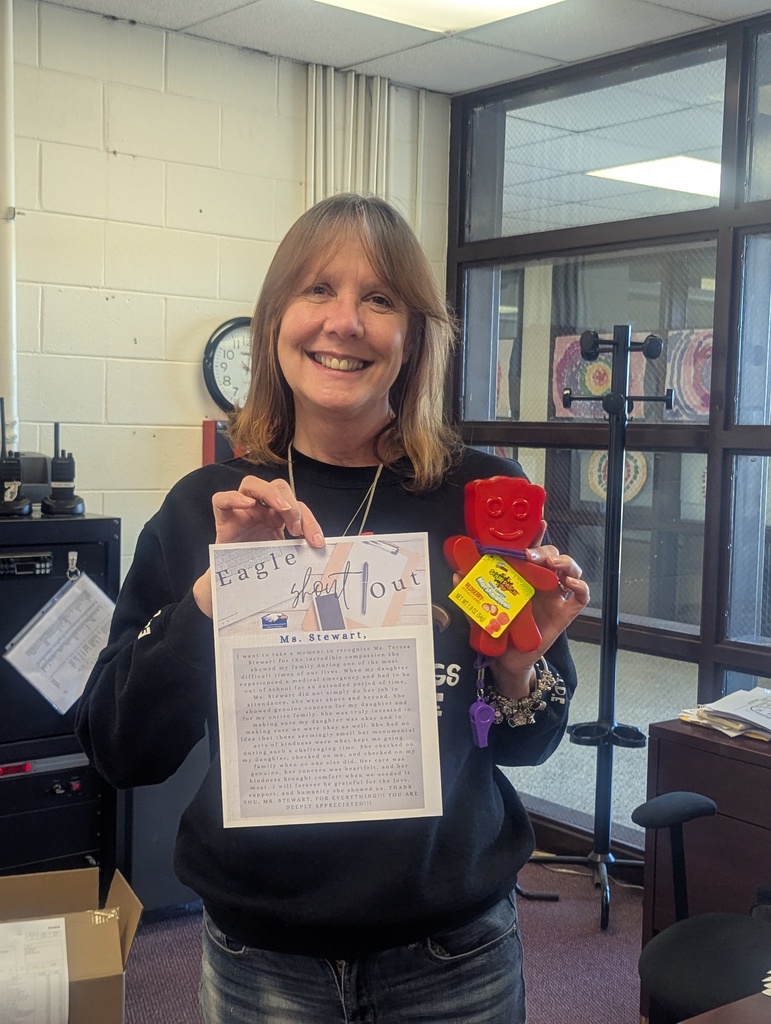 Eagle shout Out
Ms. Stewart,
I want to take a moment to recognize Ms. Teresa
Stewart for the incredible compassion she
showed my family during one of the most
difficult times of our lives. When my daughter
experienced a medical emergency and had to be
out of school for an extended period of time,
Ms. Stewart did not simply do her job in
attendance, she went above and beyond. She
showed genuine concern for my daughter and
for my entire family. She was truly invested in
making sure my daughter was okay and in
making sure we were okay as well. She had no
idea that these seemingly small but monumental
acts of kindness were what kept me going
during such a challenging time. She checked on
my daughter, checked on me, and checked on my
family when no one else did. Her care was
genuine, her concern was heartfelt, and her
kindness brought comfort when we needed it
most. I will forever be grateful for the love,
support, and humanity she showed us. THANK
YOU, MS. STEWART, FOR EVERYTHING!!! YOU ARE
DEEPLY APPRECIATED!!!
REDBERRY
NET WT 1.9 OZ (54g)
GS
E
10